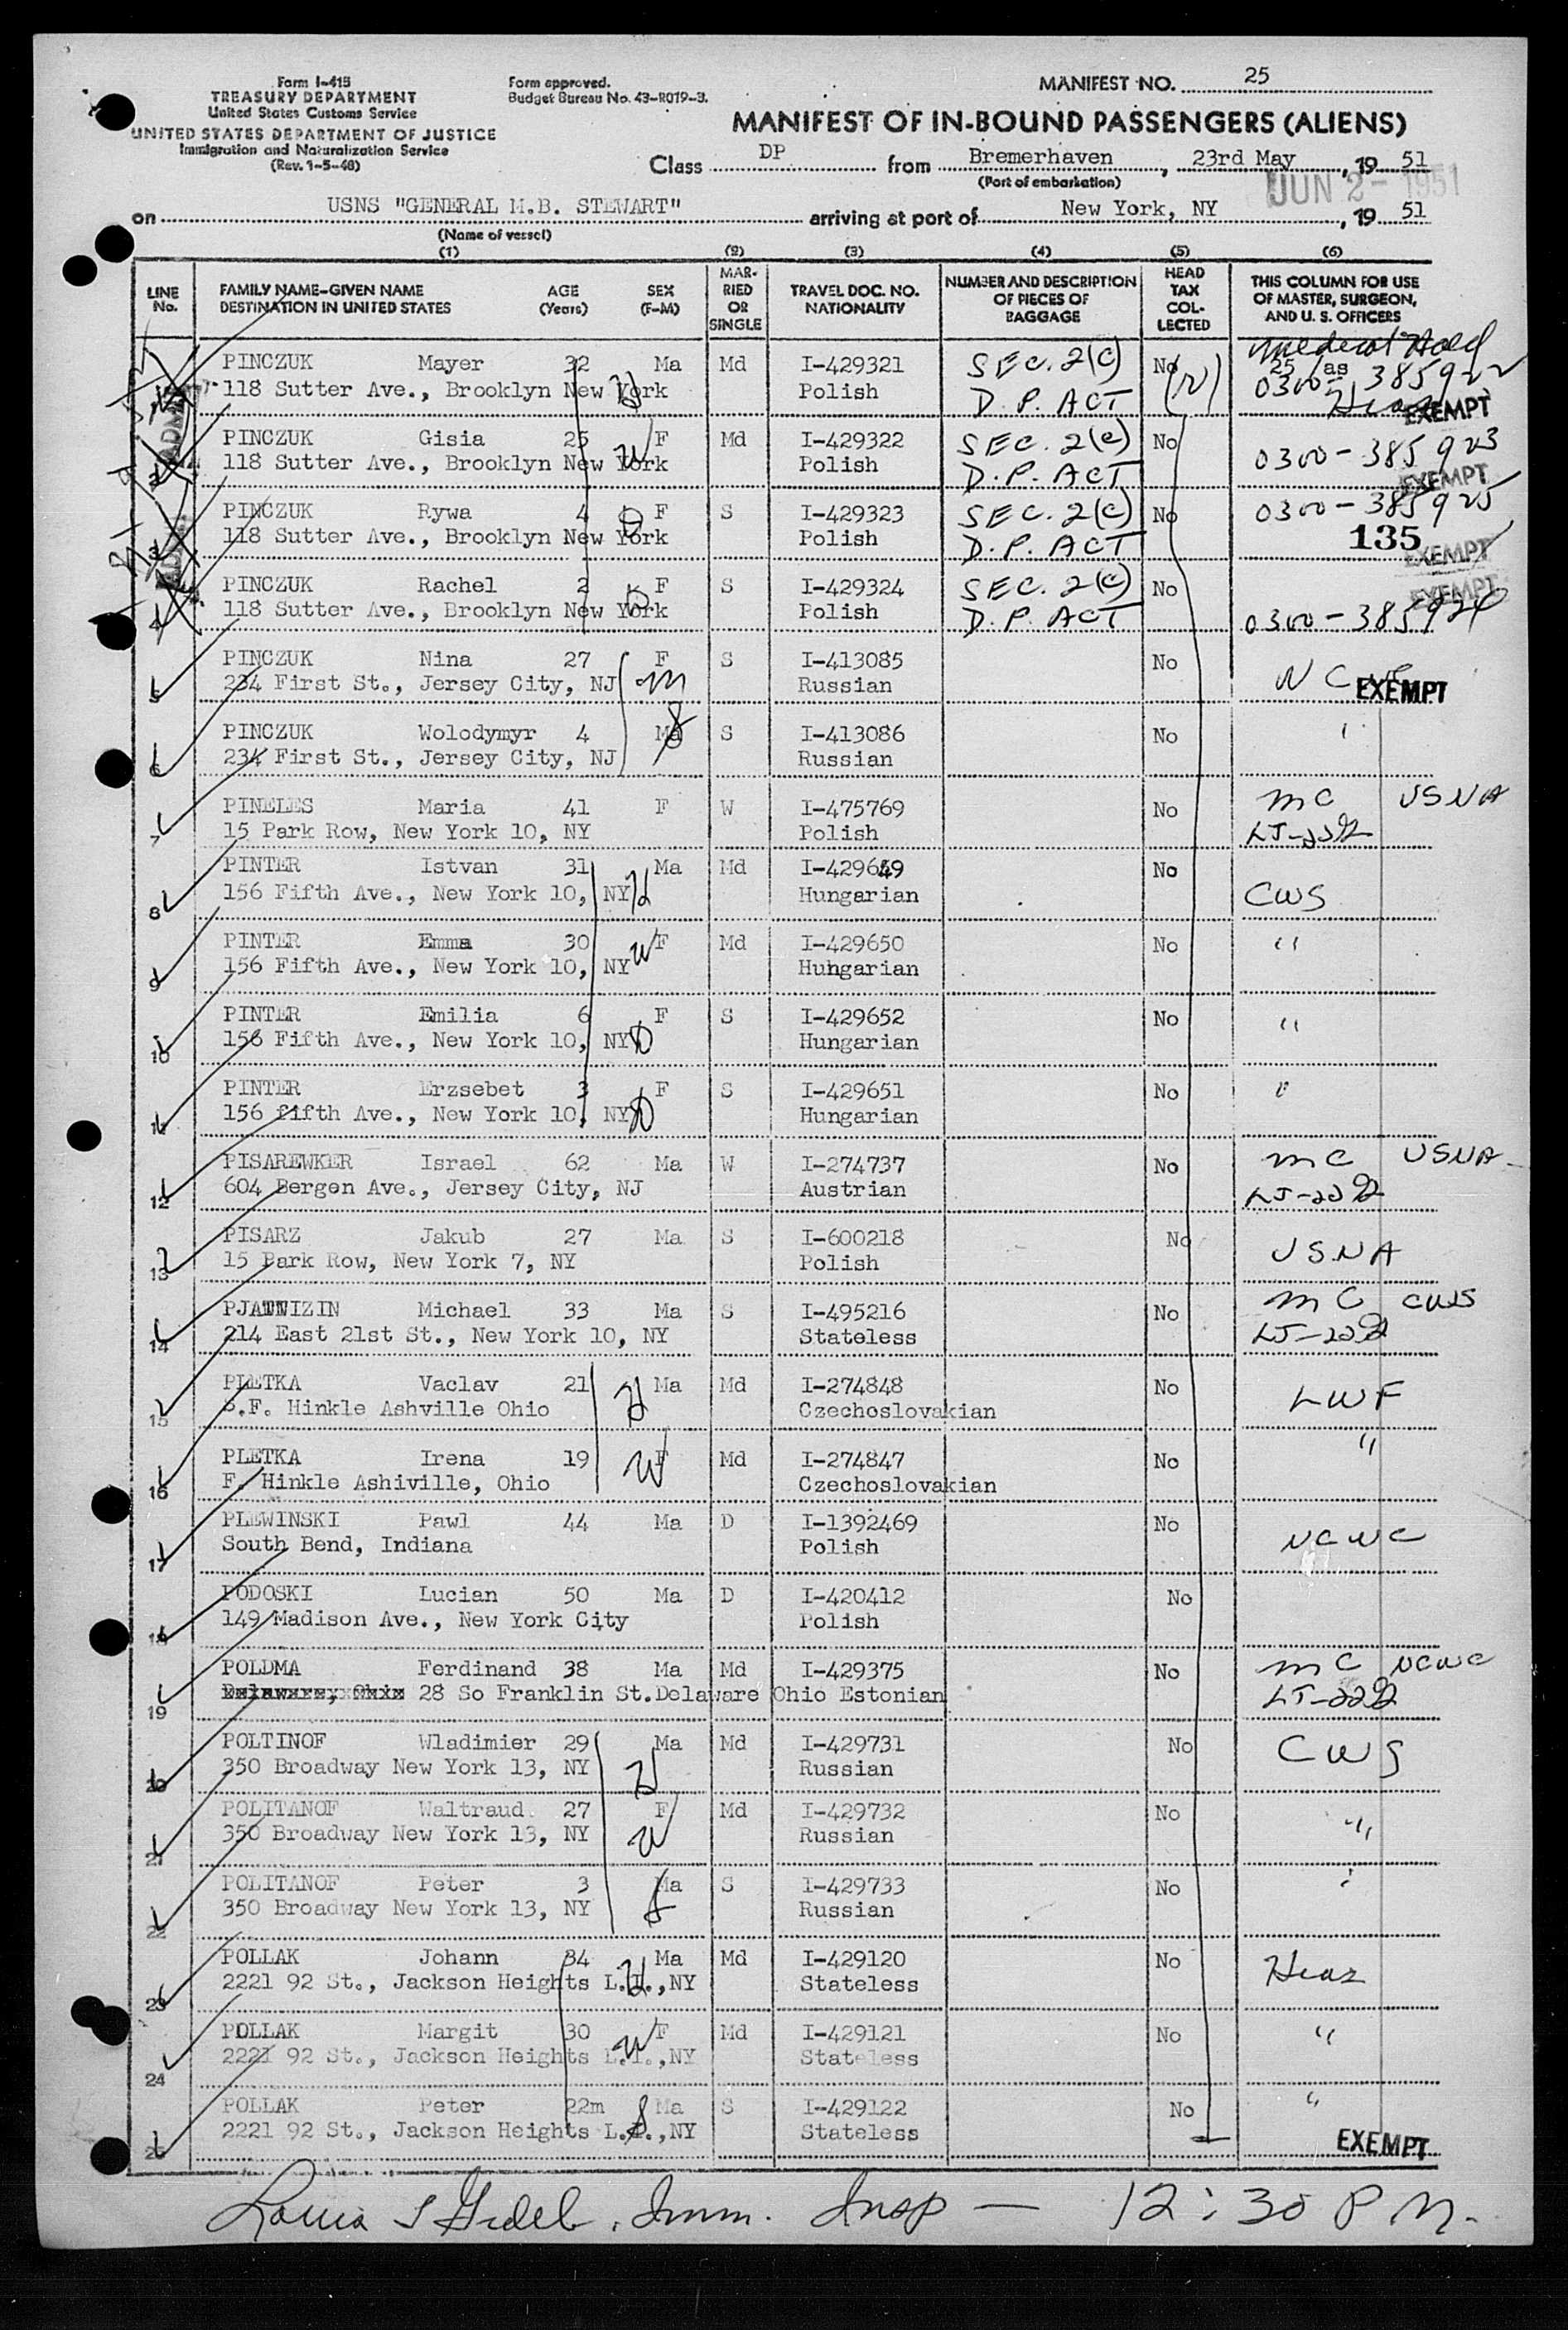 Form I-415
TREASURY DEPARTMENT
United States Customs Service
UNITED STATES DEPARTMENT OF JUSTICE
Immigration and Naturalization Service
(Rev. 1-5-48)
Form approved.
Budget Bureau No. 43-R019-3.
MANIFEST NO. 25
MANIFEST OF IN-BOUND PASSENGERS (ALIENS)
Class DP from Bremerhaven, 23rd May, 19 51
(Port of embarkation)
JUN 2- 1951
on USNS "GENERAL M.B. STEWART" arriving at port of New York, NY, 19 51
(Name of vessel)
(1) (2) (3) (4) (5) (6)
LINE No. FAMILY NAME-GIVEN NAME DESTINATION IN UNITED STATES AGE (Years) SEX (F-M) MARRIED OR SINGLE TRAVEL DOC. NO. NATIONALITY NUMBER AND DESCRIPTION OF PIECES OF BAGGAGE HEAD TAX COLLECTED THIS COLUMN FOR USE OF MASTER, SURGEON, AND U. S. OFFICERS
Medical Hold
PINCZUK Mayer 32 Ma Md I-429321 SEC. 2(c) No 25 as
118 Sutter Ave., Brooklyn New York Polish D.P. ACT 0300-385922
Hias EXEMPT
2 PINCZUK Gisia 25 F Md I-429322 SEC. 2(c) No
118 Sutter Ave., Brooklyn New York Polish D.P. ACT 0300-385923
EXEMPT
3 PINCZUK Rywa 4 F S I-429323 SEC. 2(c) No 0300-385925
118 Sutter Ave., Brooklyn New York Polish D.P. ACT 135 EXEMPT
4 PINCZUK Rachel 2 F S I-429324 SEC. 2(c) No EXEMPT
118 Sutter Ave., Brooklyn New York Polish D.P. ACT 0300-385924
5 PINCZUK Nina 27 F S I-413085 No
234 First St., Jersey City, NJ m Russian NCWC EXEMPT
6 PINCZUK Wolodymyr 4 Ma S I-413086 No
234 First St., Jersey City, NJ Russian
7 PINELES Maria 41 F W I-475769 No MC USNA
15 Park Row, New York 10, NY Polish
8 PINTER Istvan 31 Ma Md I-429649 No
156 Fifth Ave., New York 10, NY H Hungarian CWS
9 PINTER Emma 30 F Md I-429650 No "
156 Fifth Ave., New York 10, NY W Hungarian
10 PINTER Emilia 6 F S I-429652 No "
156 Fifth Ave., New York 10, NY D Hungarian
11 PINTER Erzsebet 3 F S I-429651 No "
156 fifth Ave., New York 10, NY D Hungarian
12 PISAREWKER Israel 62 Ma W I-274737 No MC USNA
604 Bergen Ave., Jersey City, NJ Austrian
13 PISARZ Jakub 27 Ma S I-600218 No
15 Park Row, New York 7, NY Polish USNA
14 PJATNIZIN Michael 33 Ma S I-495216 No MC CWS
214 East 21st St., New York 10, NY Stateless
15 PLETKA Vaclav 21 Ma Md I-274848 No LWF
F. Hinkle Ashville Ohio H Czechoslovakian
16 PLETKA Irena 19 F Md I-274847 No "
F. Hinkle Ashiville, Ohio W Czechoslovakian
17 PLEWINSKI Pawl 44 Ma D I-1392469 No
South Bend, Indiana Polish NCWC
18 PODOSKI Lucian 50 Ma D I-420412 No
149 Madison Ave., New York City Polish
19 POLDMA Ferdinand 38 Ma Md I-429375 No MC NCWC
28 So Franklin St.Delaware Ohio Estonian
20 POLTINOF Wladimier 29 Ma Md I-429731 No CWS
350 Broadway New York 13, NY H Russian
21 POLITANOF Waltraud 27 F Md I-429732 No "
350 Broadway New York 13, NY W Russian
22 POLITANOF Peter 3 Ma S I-429733 No "
350 Broadway New York 13, NY S Russian
23 POLLAK Johann 34 Ma Md I-429120 No Hias
2221 92 St., Jackson Heights L.I.,NY H Stateless
24 POLLAK Margit 30 F Md I-429121 No "
2221 92 St., Jackson Heights L.I.,NY W Stateless
25 POLLAK Peter 22m Ma S I-429122 No "
2221 92 St., Jackson Heights L.I.,NY S Stateless EXEMPT
Imm. Insp — 12:30 P.M.